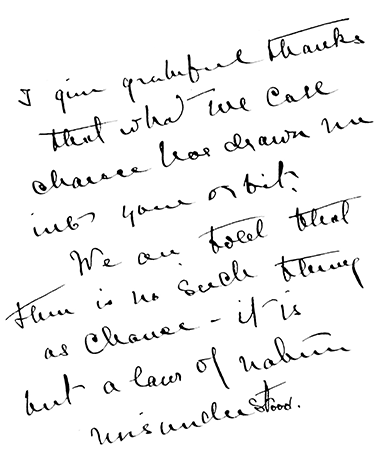 I give grateful thanks
that what we call
chance has drawn me
into your orbit.
We are told that
there is no such thing
as chance - it is
but a law of nature
misunderstood.